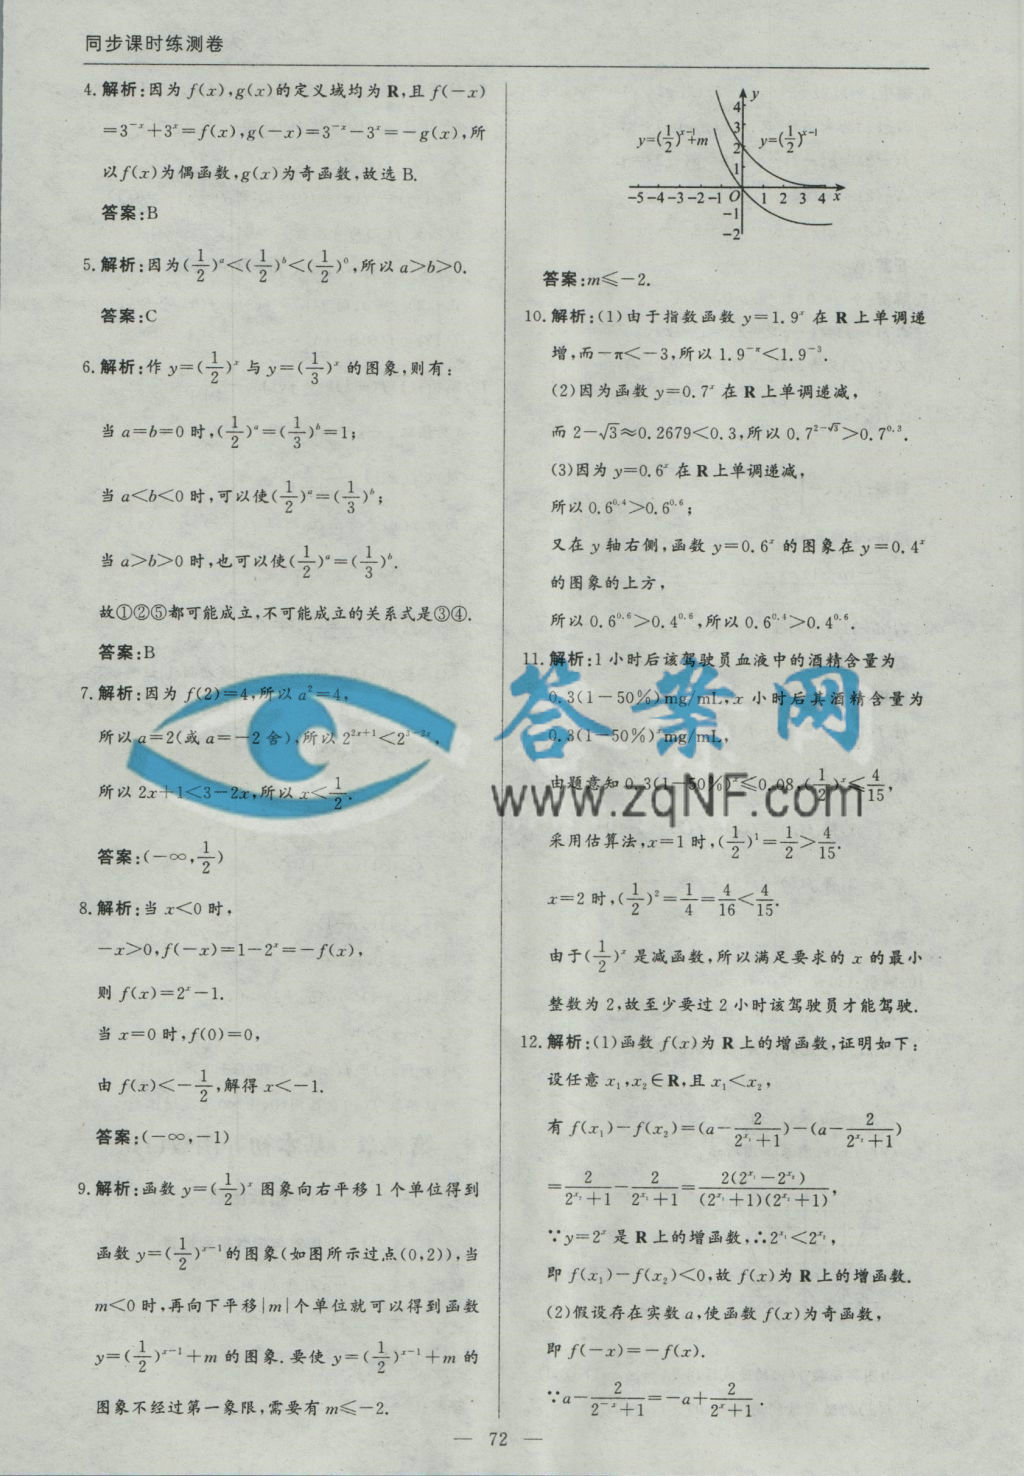 同步课时练测卷
4. 解析:因为 f(x),g(x)的定义域均为 R,且 f(-x)
=3^{-x}+3^x=f(x),g(-x)=3^{-x}-3^x=-g(x),所
以f(x)为偶函数,g(x)为奇函数,故选 B.
答案:B
5. 解析:因为(1/2)^a<(1/2)^b<(1/2)^0,所以 a>b>0.
答案:C
6. 解析:作 y=(1/2)^x 与 y=(1/3)^x 的图象,则有:
当 a=b=0 时,(1/2)^a=(1/3)^b=1;
当 a<b<0 时,可以使(1/2)^a=(1/3)^b;
当 a>b>0 时,也可以使(1/2)^a=(1/3)^b.
故①②⑤都可能成立,不可能成立的关系式是③④.
答案:B
7. 解析:因为 f(2)=4,所以 a^2=4,
所以 a=2(或 a=-2 舍),所以 2^{2x+1}<2^{3-2x},
所以 2x+1<3-2x,所以 x<1/2.
答案:(-∞,1/2)
8. 解析:当 x<0 时,
-x>0,f(-x)=1-2^x=-f(x),
则 f(x)=2^x-1.
当 x=0 时,f(0)=0,
由 f(x)<-1/2,解得 x<-1.
答案:(-∞,-1)
9. 解析:函数 y=(1/2)^x 图象向右平移 1 个单位得到
函数 y=(1/2)^{x-1}的图象(如图所示过点(0,2)),当
m<0 时,再向下平移|m|个单位就可以得到函数
y=(1/2)^{x-1}+m 的图象.要使 y=(1/2)^{x-1}+m 的
图象不经过第一象限,需要有 m≤-2.
y
4
3
2
1
y=(1/2)^{x-1}+m
y=(1/2)^{x-1}
-5 -4 -3 -2 -1 O 1 2 3 4 x
-1
-2
答案:m≤-2.
10. 解析:(1)由于指数函数 y=1.9^x 在 R 上单调递
增,而-π<-3,所以 1.9^{-π}<1.9^{-3}.
(2)因为函数 y=0.7^x 在 R 上单调递减,
而 2-√3≈0.2679<0.3,所以 0.7^{2-√3}>0.7^{0.3}.
(3)因为 y=0.6^x 在 R 上单调递减,
所以 0.6^{0.4}>0.6^{0.6};
又在 y 轴右侧,函数 y=0.6^x 的图象在 y=0.4^x
的图象的上方,
所以 0.6^{0.6}>0.4^{0.6},所以 0.6^{0.4}>0.4^{0.6}.
11. 解析:1 小时后该驾驶员血液中的酒精含量为
0.3(1-50%)mg/mL,x 小时后其酒精含量为
0.3(1-50%)^x mg/mL,
由题意知 0.3(1-50%)^x≤0.08,(1/2)^x≤4/15,
采用估算法,x=1 时,(1/2)^1=1/2>4/15.
x=2 时,(1/2)^2=1/4=4/16<4/15.
由于(1/2)^x 是减函数,所以满足要求的 x 的最小
整数为 2,故至少要过 2 小时该驾驶员才能驾驶.
12. 解析:(1)函数 f(x)为 R 上的增函数,证明如下:
设任意 x_1,x_2∈R,且 x_1<x_2,
有 f(x_1)-f(x_2)=(a-2/(2^{x_1}+1))-(a-2/(2^{x_2}+1))
=2/(2^{x_2}+1)-2/(2^{x_1}+1)=2(2^{x_1}-2^{x_2})/((2^{x_1}+1)(2^{x_2}+1)),
∵y=2^x 是 R 上的增函数,∴2^{x_1}<2^{x_2},
即 f(x_1)-f(x_2)<0,故 f(x)为 R 上的增函数.
(2)假设存在实数 a,使函数 f(x)为奇函数,
即 f(-x)=-f(x).
∵a-2/(2^{-x}+1)=-a+2/(2^x+1).
答案网
www.zqNF.com
— 72 —